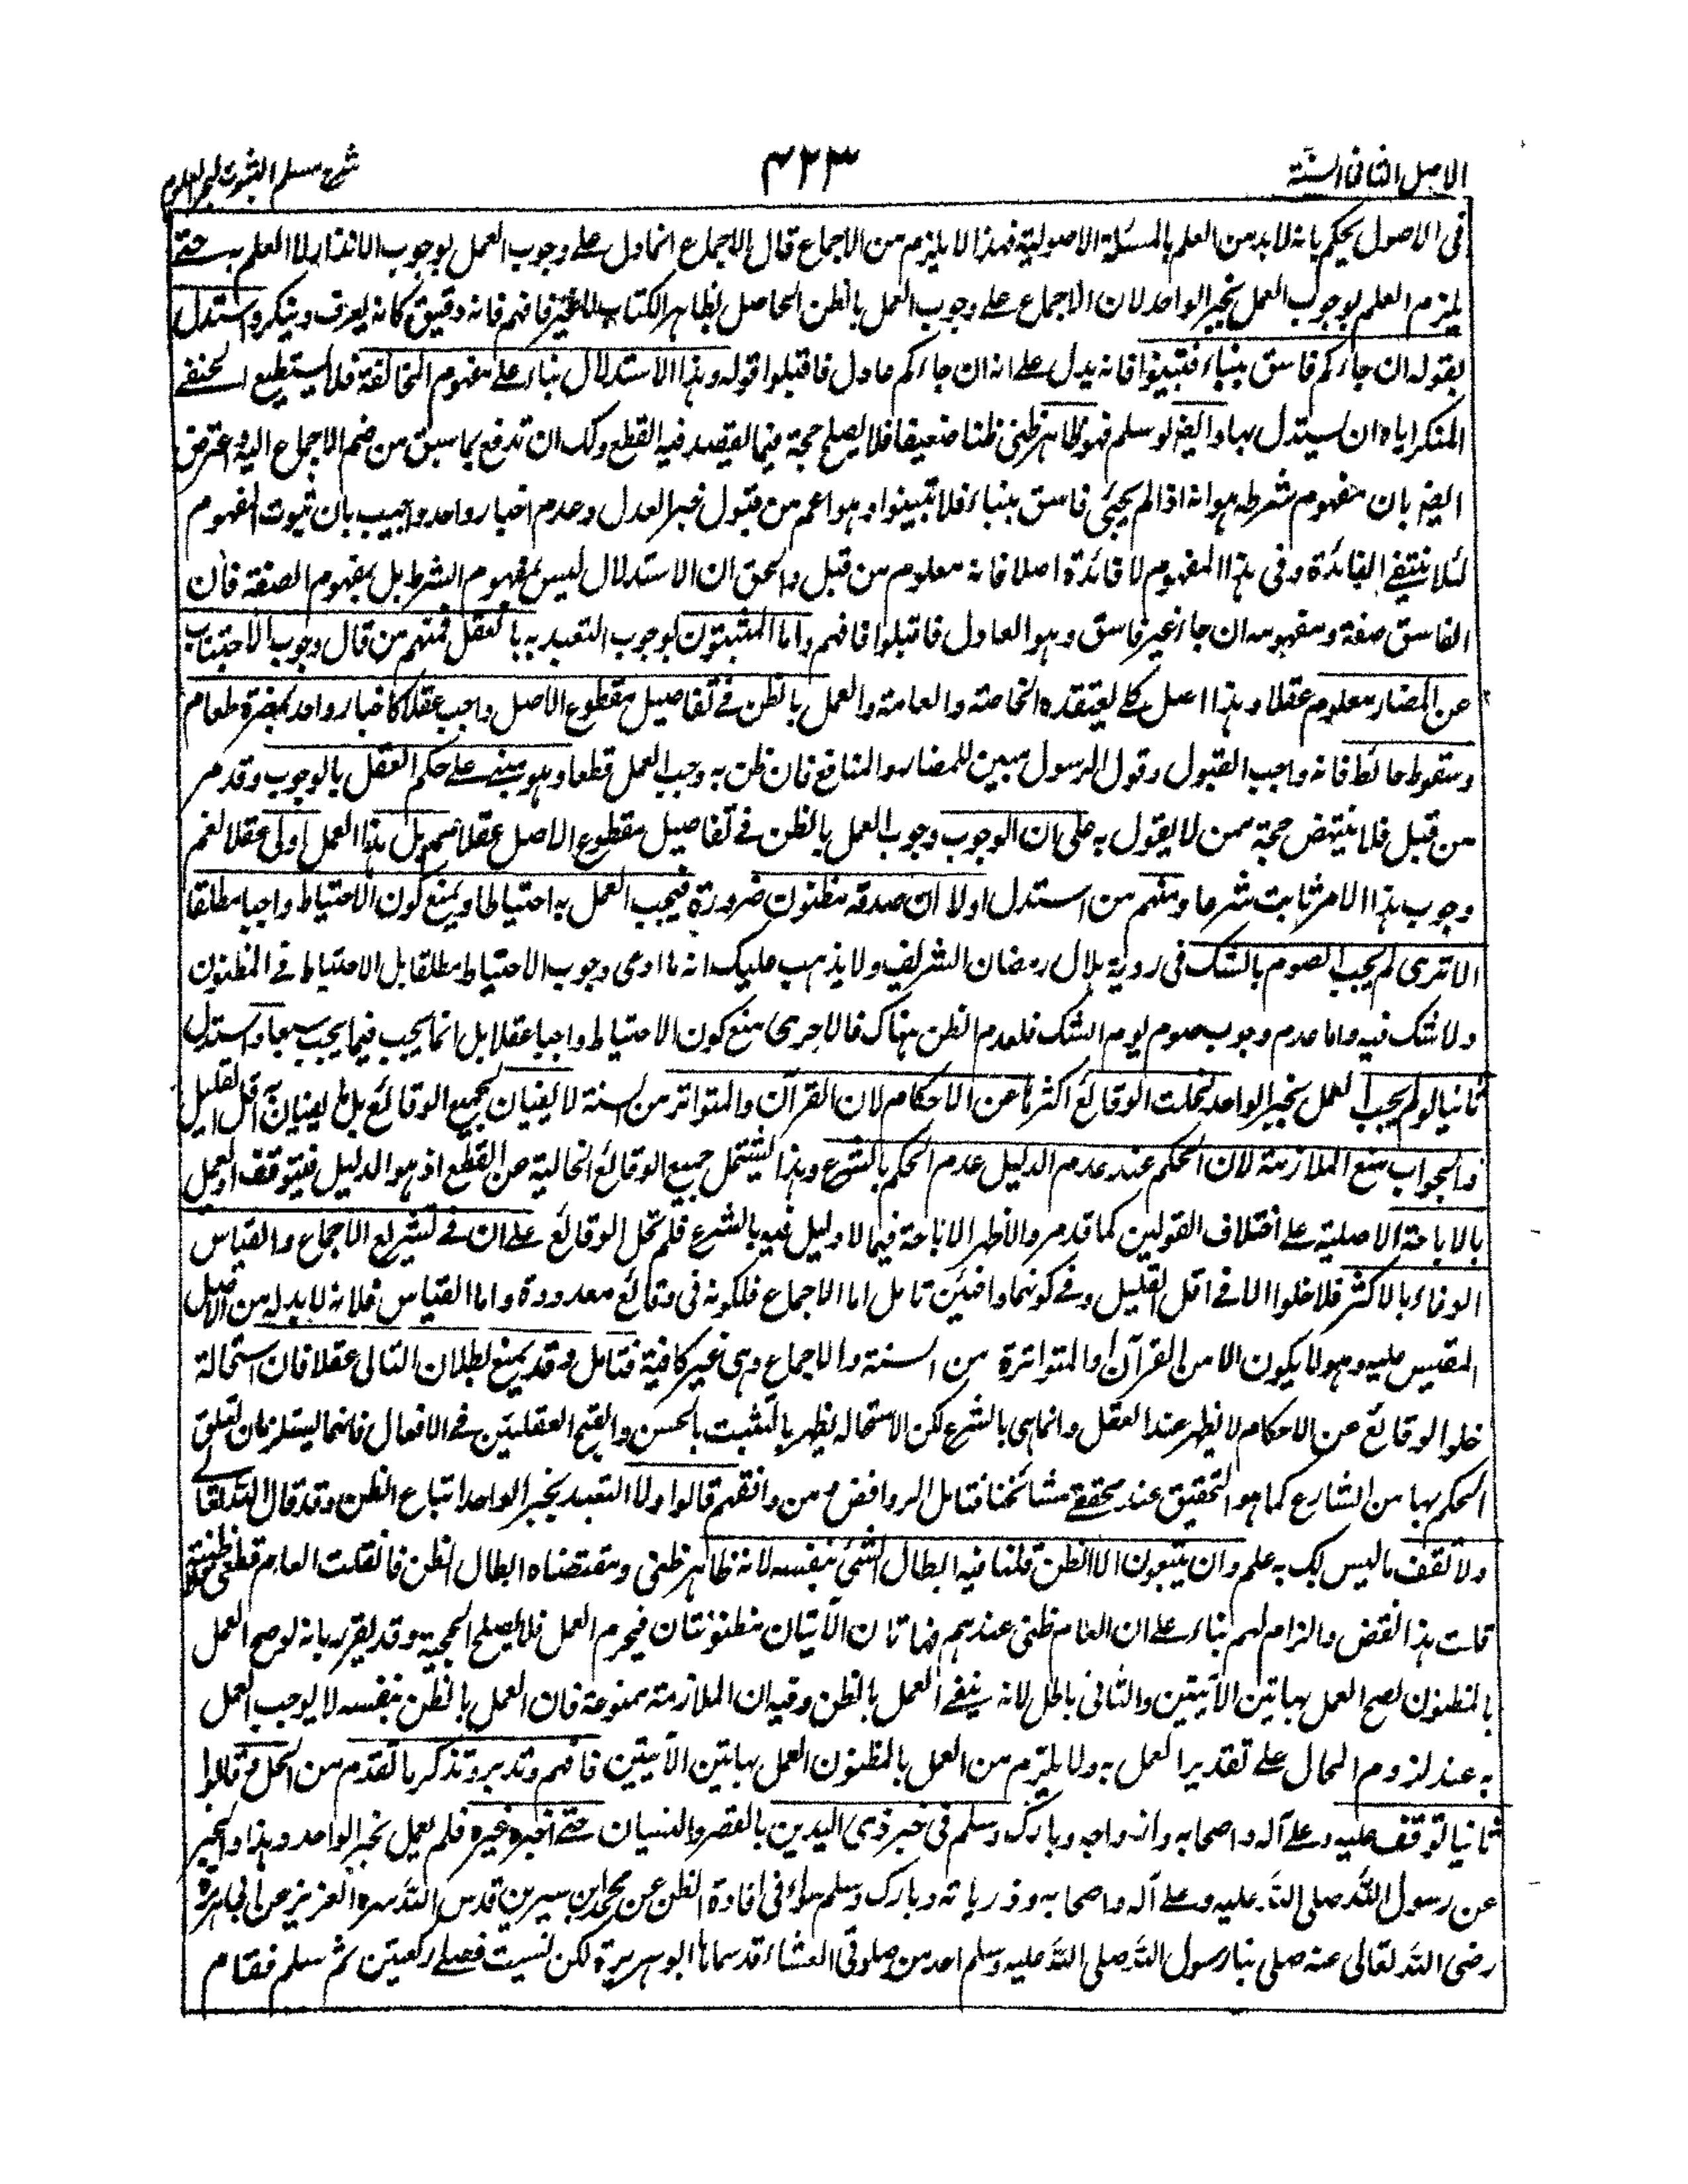 الاصل الثانی السنة
۴۲۳
شرح مسلم الثبوت لبحر العلوم
فی الاصول یحکم بانه لا بد من العلم بالمسئلة الاصولیة فهذا لا یلزم من الاجماع قال الاجماع انما دل علے وجوب العمل بوجوب الانذار لا العلم به حتے
یلزم العلم بوجوب العمل بخبر الواحد لان الاجماع علے وجوب العمل بالظن الحاصل بظاهر الکتاب فافهم فانه دقیق کانه یعرف وینکر واستدل
بقوله ان جاءکم فاسق بنباء فتبینوا فانه یدل علے انه ان جاءکم عادل فاقبلوا قوله وهذا الاستدلال بناء علے مفهوم المخالفة فلا یستطیع الحنفے
المنکر ایاه ان یستدل بها وایضا لو سلم فهو ظاهر ظنی ظنا ضعیفا فلا یصلح حجة فیما یقصد فیه القطع ولک ان تدفع بما سبق من ضم الاجماع الیه واعترض
ایضا بان مفهوم شرطه هو انه اذا لم یجئ فاسق بنباء فلا تبینوا وهو اعم من قبول خبر العدل وعدم اخبار واحد واجیب بان ثبوت المفهوم
لئلا ینتفے الفائدة وفی هذا المفهوم لا فائدة اصلا فانه معلوم من قبل والحق ان الاستدلال لیس بمفهوم الشرط بل بمفهوم الصفة فان
الفاسق صفة ومفهومه ان جاء غیر فاسق وهو العادل فاقبلوا فافهم واما المثبتون لوجوب التعبد به بالعقل فمنهم من قال وجوب الاجتناب
عن المضار معلوم عقلا وهذا اصل کلے یعتقده الخاصة والعامة والعمل بالظن فے تفاصیل مقطوع الاصل واجب عقلا کاخبار واحد بمضرة طعام
وسقوط حائط فانه واجب القبول وقول الرسول مبین للمضار والمنافع فان ظن به وجب العمل قطعا وهو مبنے علے حکم العقل بالوجوب وقد مر
من قبل فلا ینتهض حجة ممن لا یقول به علی ان الوجوب وجوب العمل بالظن فے تفاصیل مقطوع الاصل عقلا مم بل هذا العمل اولی عقلا نعم
وجوب هذا الامر ثابت شرعا ومنهم من استدل اولا ان صدقه مظنون ضرورة فیجب العمل به احتیاطا ویمنع کون الاحتیاط واجبا مطلقا
الا تری لم یجب الصوم بالشک فی رویة هلال رمضان الشریف ولا یذهب علیک انه ما ادی وجوب الاحتیاط مطلقا بل الاحتیاط فے المظنون
ولا شک فیه واما عدم وجوب صوم یوم الشک فلعدم الظن هناک فالاحری منع کون الاحتیاط واجبا عقلا بل انما یجب فیما یجب سمعا واستدل
ثانیا لو لم یجب العمل بخبر الواحد لخلت الوقائع اکثرها عن الاحکام لان القرآن والمتواتر من السنة لا یفیان بجمیع الوقائع بل انما یفیان به اقل القلیل
والجواب منع الملازمة لان الحکم عند عدم الدلیل عدم الحکم بالشرع وهذا یشتمل جمیع الوقائع الخالیة عن القطع اذ هو الدلیل فیتوقف او یعمل
بالاباحة الاصلیة علے اختلاف القولین کما قد مر والاظهر الاباحة فیما لا دلیل فیه بالشرع فلم تخل الوقائع علے ان فے تشریع الاجماع والقیاس
الوفاء بالاکثر فلا خلوا الا فے اقل القلیل وفے کونهما وافیین تامل اما الاجماع فلکونه فی وقائع معدودة واما القیاس فلانه لا بد له من الاصل
المقیس علیه وهو لا یکون الا من القرآن او المتواترة من السنة والاجماع وهی غیر کافیة فتامل وقد یمنع بطلان التالی عقلا فان استحالة
خلو الوقائع عن الاحکام لا یظهر عند العقل وانما هی بالشرع لکن الاستحاله یظهر بالتشبث بالحسن والقبح العقلیین فے الافعال فانهما یستلزمان تعلق
الحکم بها من الشارع کما هو التحقیق عند محققے مشائخنا فتامل الروافض ومن وافقهم قالوا اولا التعبد بخبر الواحد اتباع الظن وقد قال الله تعالے
ولا تقف ما لیس لک به علم وان یتبعون الا الظن قلنا فیه ابطال الشئ بنفسه لانه ظاهر ظنی ومقتضاه ابطال الظن فان قلت العام قطعی
قلت هذا نقض والزام لهم بناء علے ان العام ظنی عندهم فهاتان الآیتان مظنونتان فیحرم العمل فلا یصلح للحجیة وقد یقرر بانه لو صح العمل
بالمظنون لصح العمل بهاتین الآیتین والثانی باطل لانه ینفے العمل بالظن وفیه ان الملازمة ممنوعة فان العمل بالظن بنفسه لا یوجب العمل
به عند لزوم المحال علے تقدیر العمل به ولا یلزم من العمل بالمظنون العمل بهاتین الآیتین فافهم وتدبر وتذکر ما تقدم من الحل وقالوا
ثانیا توقف علیه وعلے آله واصحابه وازواجه وبارک وسلم فی خبر ذی الیدین بالقصر والنسیان حتے اخبره غیره فلم یعمل بخبر الواحد وهذا والخبر
عن رسول الله صلی الله علیه وعلے آله واصحابه وذریاته وبارک وسلم سواء فی افادة الظن عن محمد ابن سیرین قدس الله سره العزیز عن ابی هریرة
رضی الله تعالی عنه صلی بنا رسول الله صلی الله علیه وسلم احد من صلوتی العشاء قد سماها ابو هریرة لکن نسیت فصلے رکعتین ثم سلم فقام